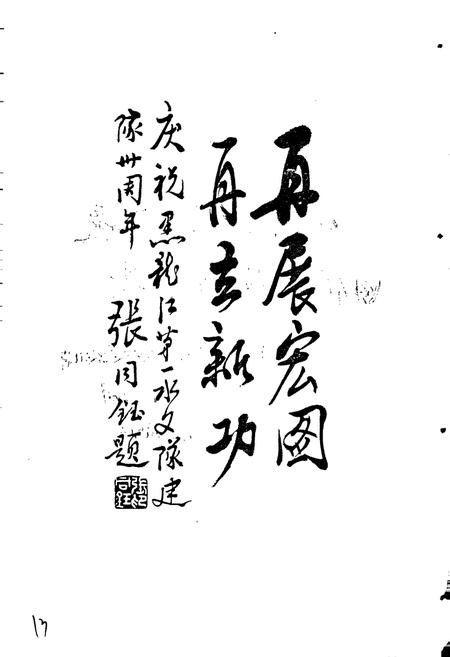 再展宏图
再立新功
庆祝黑龙江第一水文队建
队卅周年
张同钰题
13